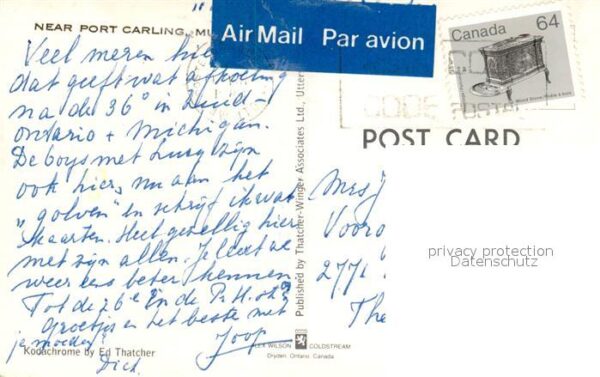 NEAR PORT CARLING, MU
Air Mail Par avion
Canada 64
POST CARD
Veel meren hie
dat geeft wat afkoeling
na de 36° in Zuid-
ontario + Michigan.
De boys met zijn
ook hier, nu aan het
"golven" en schrijf ik wat
kaarten. Heel gezellig hier
met zijn allen. Je leert we
weer eens beter kennen.
Tot de 26e in de
Groetjes en het beste met
je moeder!
Joop
Dick
Kodachrome by Ed Thatcher
Published by Thatcher-Winger Associates Ltd., Utter
ALEX WILSON COLDSTREAM
Dryden Ontario, Canada
Mrs J
Vooro
2771
The
privacy protection
Datenschutz